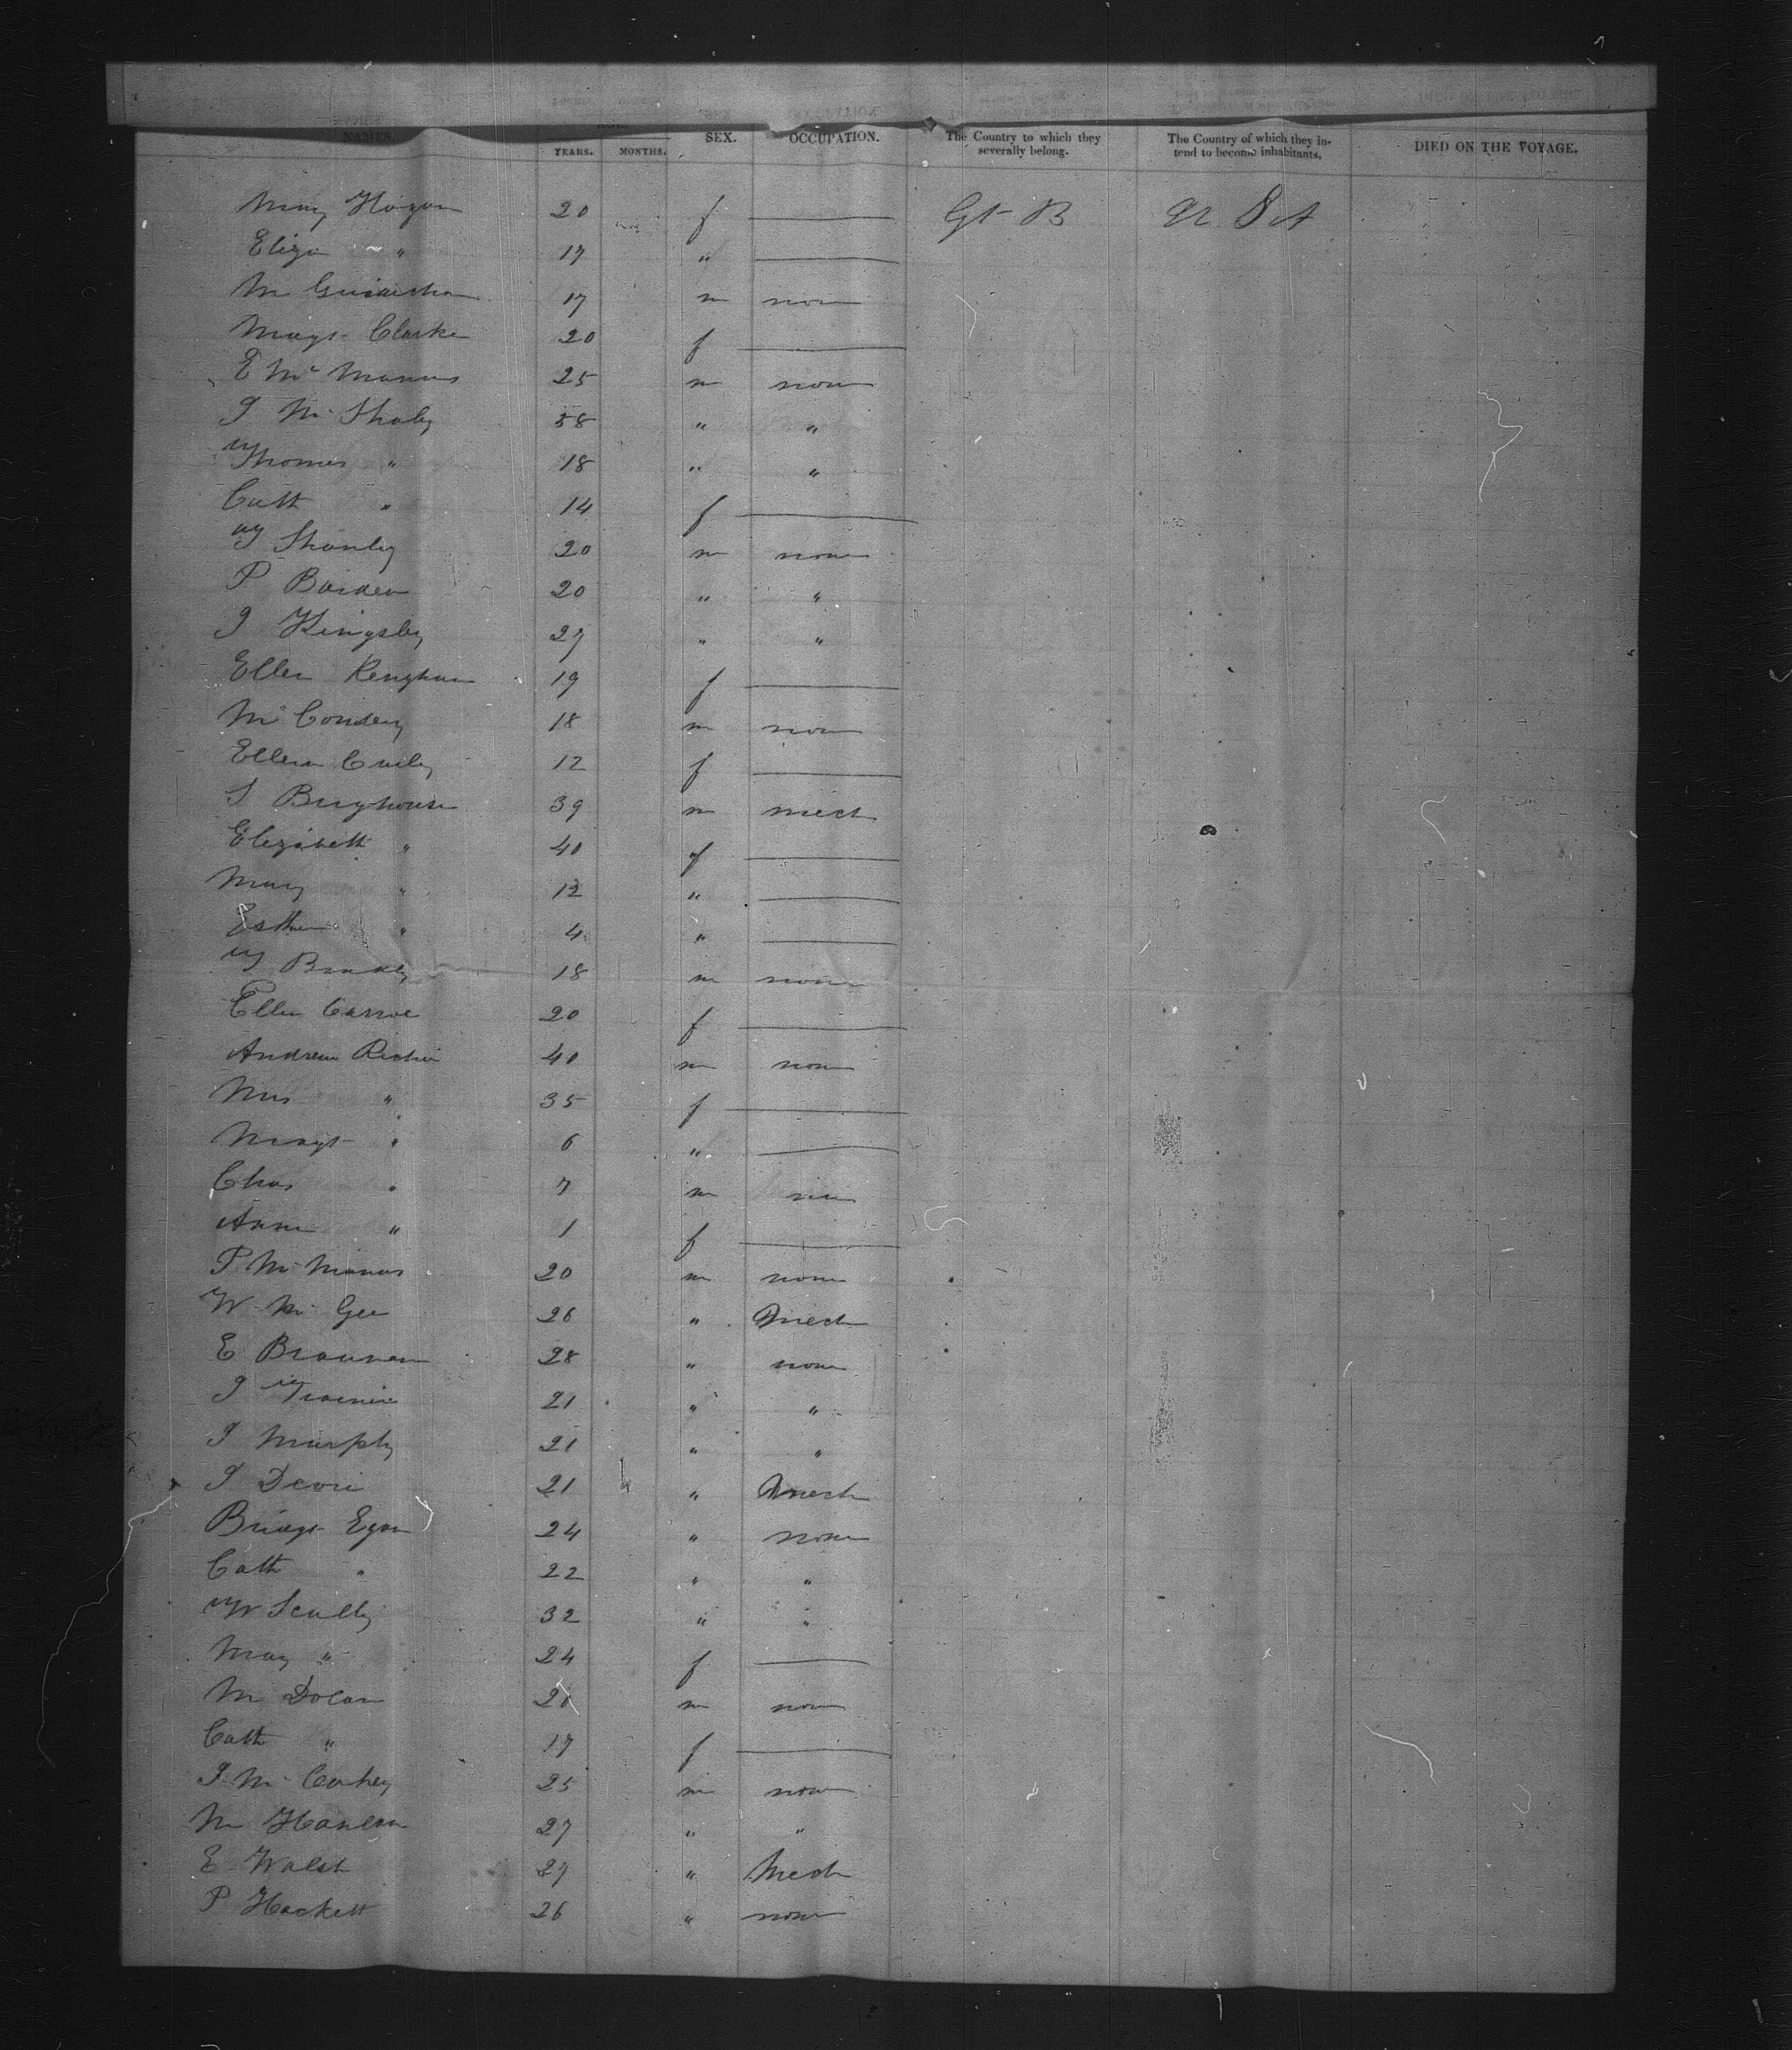 NAMES. YEARS. MONTHS. SEX. OCCUPATION. The Country to which they severally belong. The Country of which they intend to become inhabitants. DIED ON THE VOYAGE.
Mary Hogan 20 f Gt B U S A
Eliza " 17 "
M 17 m none
Magt Clarke 20 f
E Mc Manus 25 m none
M 58 " "
Thomas " 18 " "
Cath " 14 f
Shanley 20 m none
P 20 " "
J Kingsley 27 " "
Ellen 19 f
18 m none
Ellen 12 f
S 39 m mech
Elizabeth " 40 f
Mary " 12 "
Esther " 4 "
18 m none
Ellen 20 f
Andrew Richie 40 m none
Mrs " 35 f
Magt " 6 "
Chas " 7 m none
Anne " 1 f
P Mc Manus 20 m none
W Mc Gee 26 " Mech
E 28 " none
J 21 " "
J Murphy 21 " "
J 21 " Mech
Bridgt Egan 24 " none
Cath " 22 " "
Scully 32 " "
Mary " 24 f
M Dolan 21 m none
Cath " 17 f
J Mc 25 m none
M Hanlon 27 " "
E Walsh 27 " Mech
P Hackett 26 " none